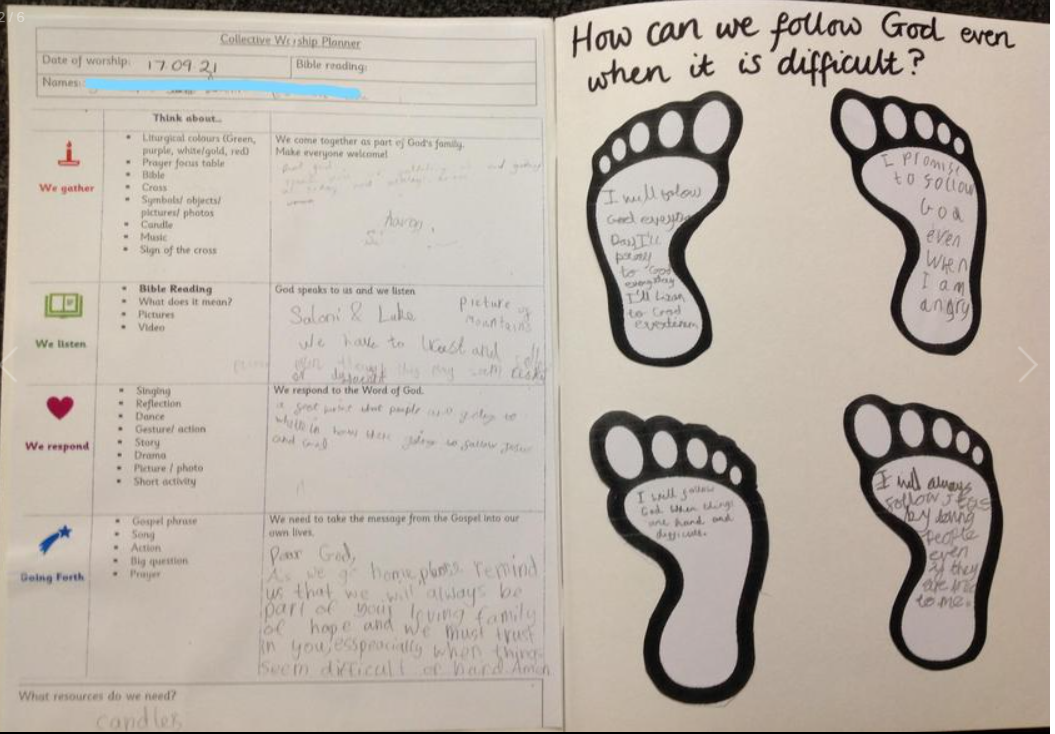 2/6
Collective Worship Planner
Date of worship: 17.09.21
Bible reading:
Names:
Think about...
We gather
Liturgical colours (Green,
purple, white/gold, red)
Prayer focus table
Bible
Cross
Symbols/ objects/
pictures/ photos
Candle
Music
Sign of the cross
We come together as part of God's family.
Make everyone welcome!
Aaron,
We listen
Bible Reading
What does it mean?
Pictures
Video
God speaks to us and we listen
Saloni & Luke
picture of
mountains
We have to trust and
We respond
Singing
Reflection
Dance
Gesture/ action
Story
Drama
Picture / photo
Short activity
We respond to the Word of God.
what people are going to
going to follow Jesus
and God
Going Forth
Gospel phrase
Song
Action
Big question
Prayer
We need to take the message from the Gospel into our
own lives.
Dear God,
As we go home, please remind
us that we will always be
part of your loving family
of hope and we must trust
in you, esspecially when things
seem difficult or hard. Amen
What resources do we need?
candles
How can we follow God even
when it is difficult?
I will folow
God
Day I'll
to God
everyday
I'll
to God
I promise
to follow
God
even
When
I am
angry
I will follow
God when things
are hard and
difficult.
I will always
Follow
by
people
even
if they
are
to me.